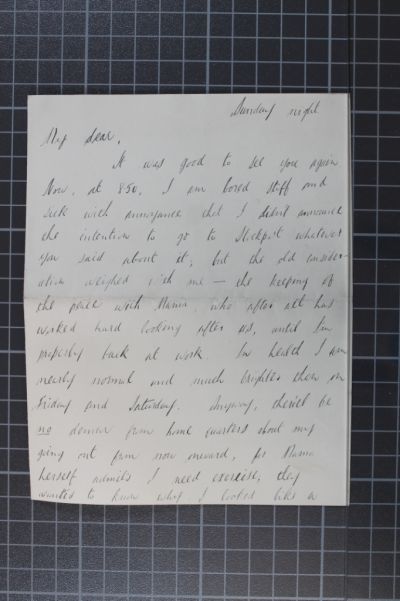 Sunday night
My dear,
It was good to see you again
Now, at 8.50, I am bored stiff and
sick with annoyance that I didn't announce
the intention to go to Stockport whatever
you said about it; but the old consider-
ation weighed with me — the keeping of
the peace with Mama, who after all has
worked hard looking after us, until I'm
properly back at work. In health I am
nearly normal and much brighter than on
Friday and Saturday. Anyway, there'll be
no demur from home quarters about my
going out from now onward, for Mama
herself admits I need exercise; they
wanted to know why I looked like a